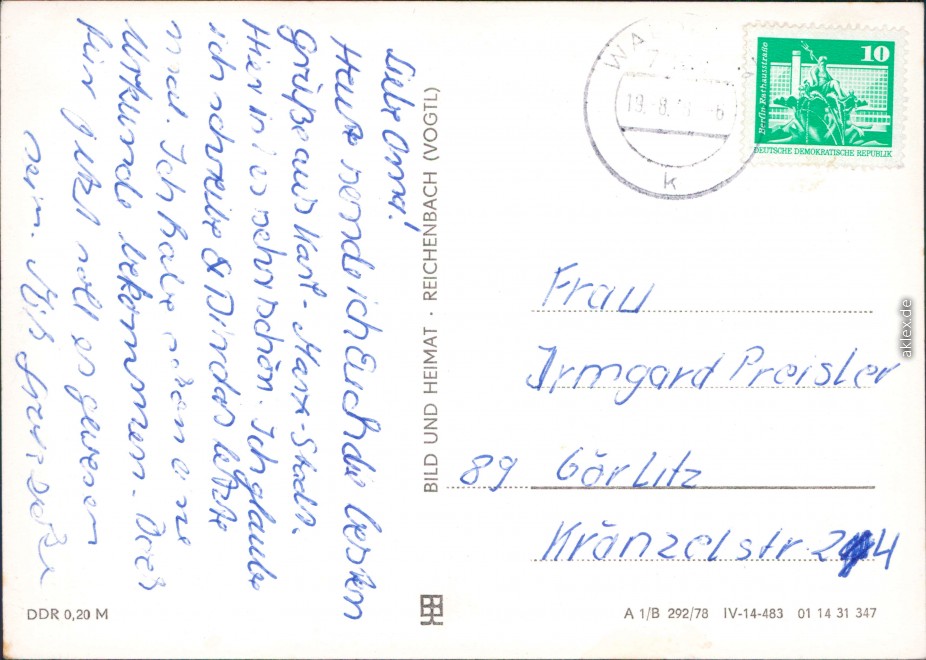 Liebe Omi!
Heute sende ich Euch die besten
Grüße aus Karl-Marx-Stadt.
Hier ist es sehr schön. Ich glaube
ich schreibe Dir das letzte
mal. Ich habe schon eine
Urkunde bekommen. Doch
für jetzt soll es gewesen
sein.
BILD UND HEIMAT · REICHENBACH (VOGTL)
DDR 0,20 M
k
10
Berlin-Rathausstraße
DEUTSCHE DEMOKRATISCHE REPUBLIK
Frau
Irmgard Preisler
89 Görlitz
Kränzelstr. 24
A 1/B 292/78 IV-14-483 01 14 31 347
aklex.de